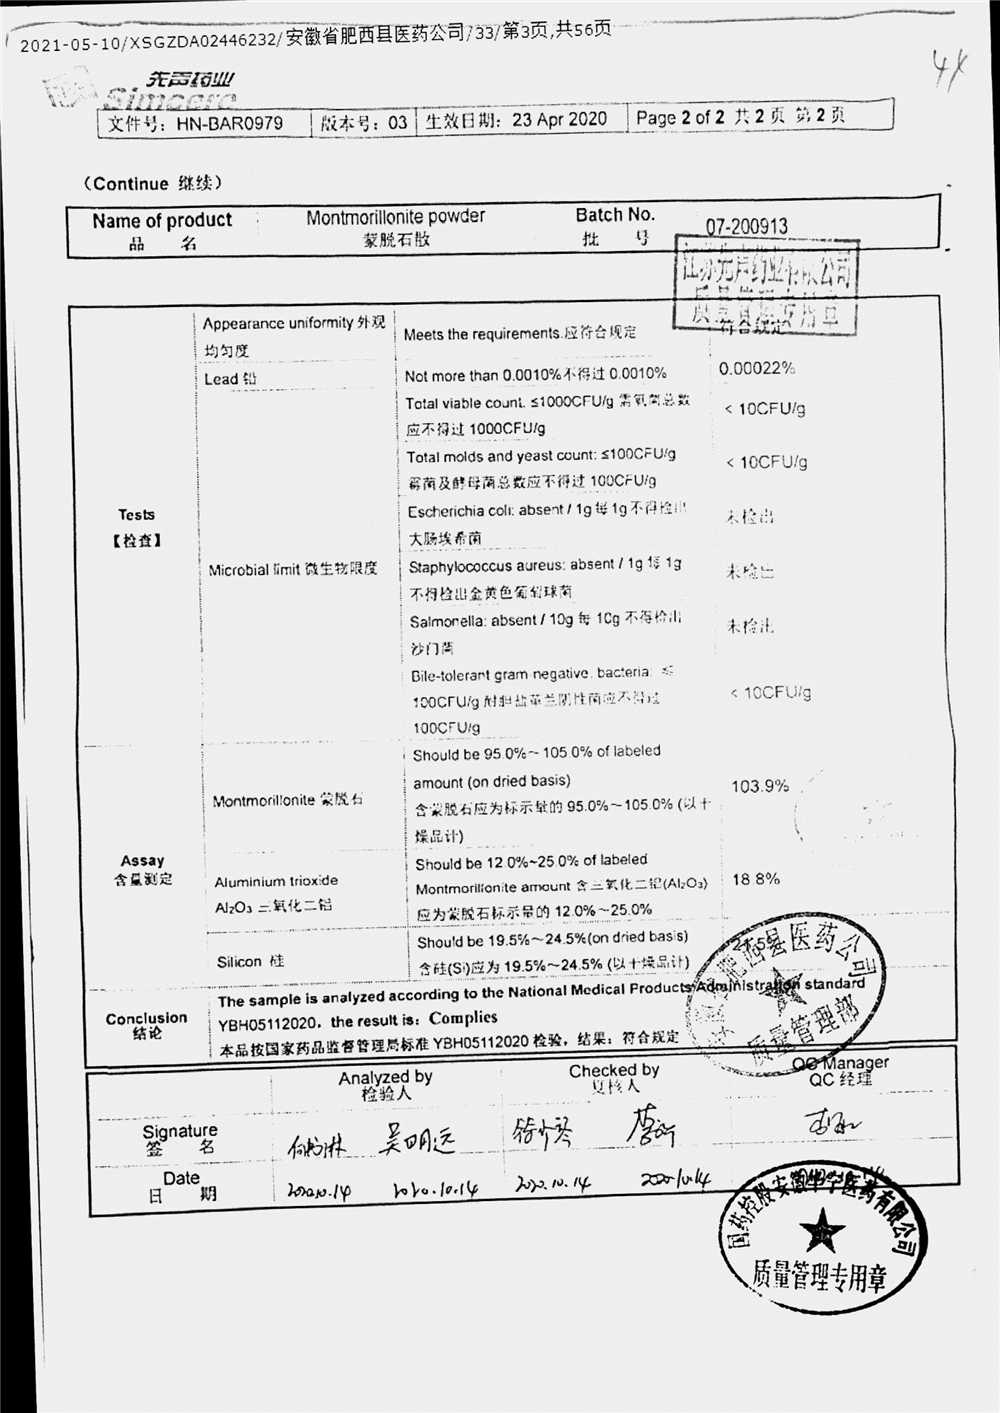 2021-05-10/XSGZDA02446232/安徽省肥西县医药公司/33/第3页,共56页
先声药业
Simcere
文件号：HN-BAR0979 版本号：03 生效日期：23 Apr 2020 Page 2 of 2 共 2 页 第 2 页
（Continue 继续）
Name of product Montmorillonite powder Batch No. 07-200913
品 名 蒙脱石散 批 号
江苏先声药业有限公司
Appearance uniformity 外观
均匀度
Meets the requirements.应符合规定
符合规定
Lead 铅
Not more than 0.0010%不得过 0.0010%
0.00022%
Tests
【检查】
Microbial limit 微生物限度
Total viable count. ≤1000CFU/g 需氧菌总数
应不得过 1000CFU/g
< 10CFU/g
Total molds and yeast count: ≤100CFU/g
霉菌及酵母菌总数应不得过 100CFU/g
< 10CFU/g
Escherichia coli: absent / 1g 每 1g 不得检出
大肠埃希菌
未检出
Staphylococcus aureus: absent / 1g 每 1g
不得检出金黄色葡萄球菌
未检出
Salmonella: absent / 10g 每 10g 不得检出
沙门菌
未检出
Bile-tolerant gram-negative. bacteria: ≤
100CFU/g 耐胆盐革兰阴性菌应不得过
100CFU/g
< 10CFU/g
Assay
含量测定
Montmorillonite 蒙脱石
Should be 95.0%~105.0% of labeled
amount (on dried basis)
含蒙脱石应为标示量的 95.0%～105.0% (以干
燥品计)
103.9%
Aluminium trioxide
Al₂O₃ 三氧化二铝
Should be 12.0%~25.0% of labeled
Montmorillonite amount 含三氧化二铝(Al₂O₃)
应为蒙脱石标示量的 12.0%～25.0%
18.8%
Silicon 硅
Should be 19.5%～24.5%(on dried basis)
含硅(Si)应为 19.5%～24.5% (以干燥品计)
肥西县医药公司
质量管理部
Conclusion
结论
The sample is analyzed according to the National Medical Products Administration standard
YBH05112020，the result is：Complies
本品按国家药品监督管理局标准 YBH05112020 检验，结果：符合规定
Analyzed by Checked by QC Manager
检验人 复核人 QC 经理
Signature
签 名
吴明远
Date
日 期
2020.10.14 2020.10.14 2020.10.14 2020.10.14
国药控股安徽华宁医药有限公司
质量管理专用章